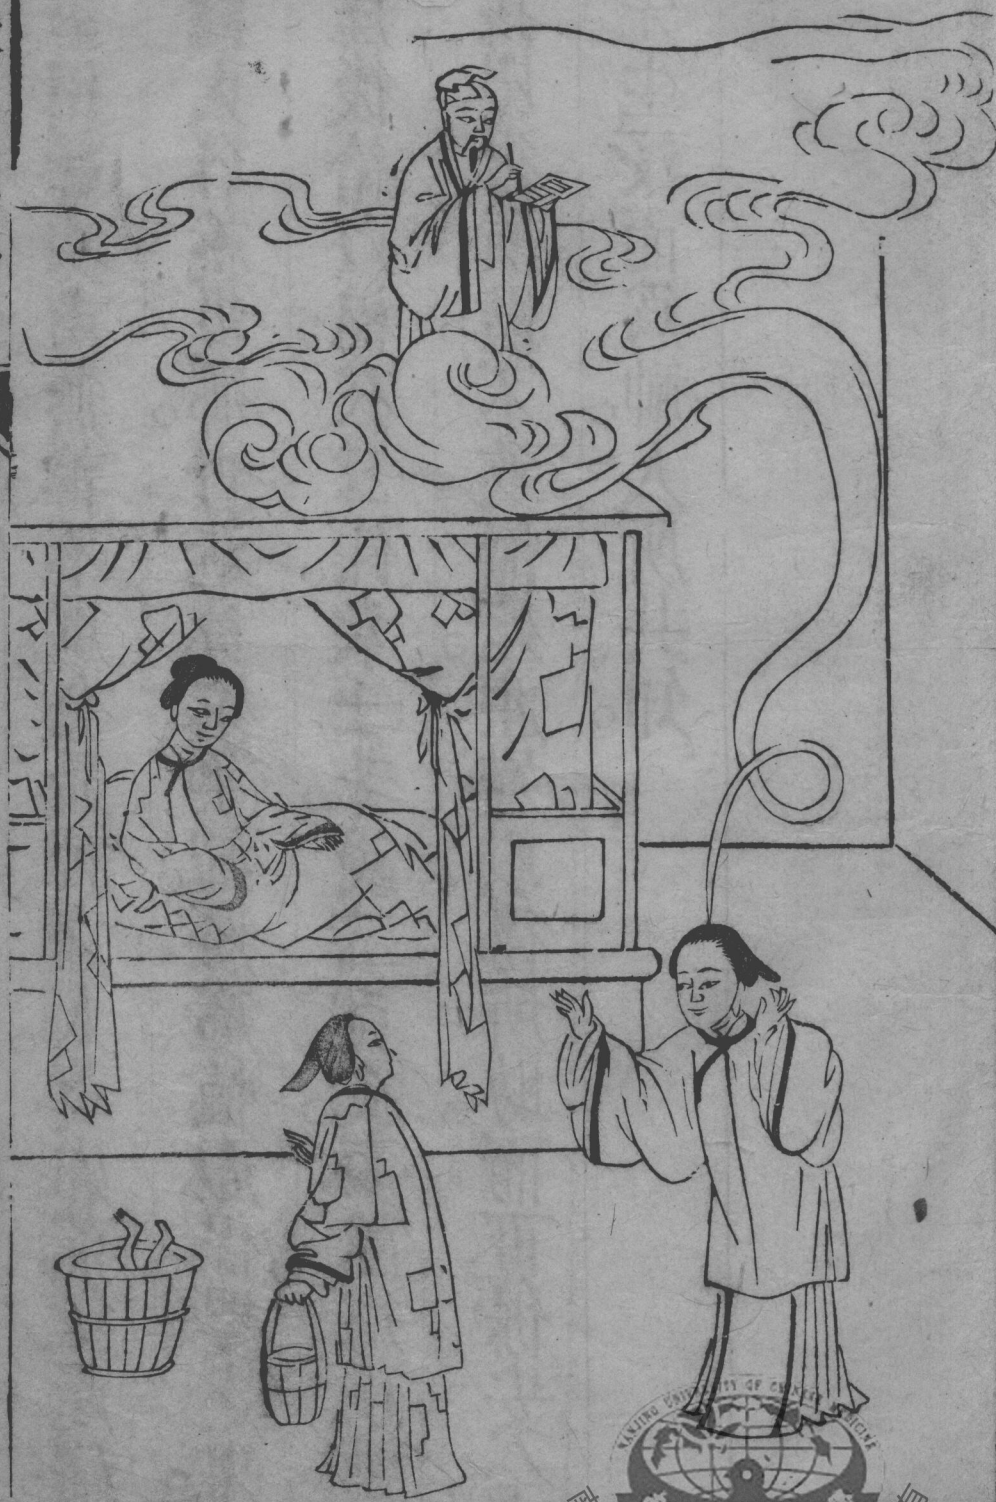 NANJING UNIVERSITY OF CHINESE MEDICINE